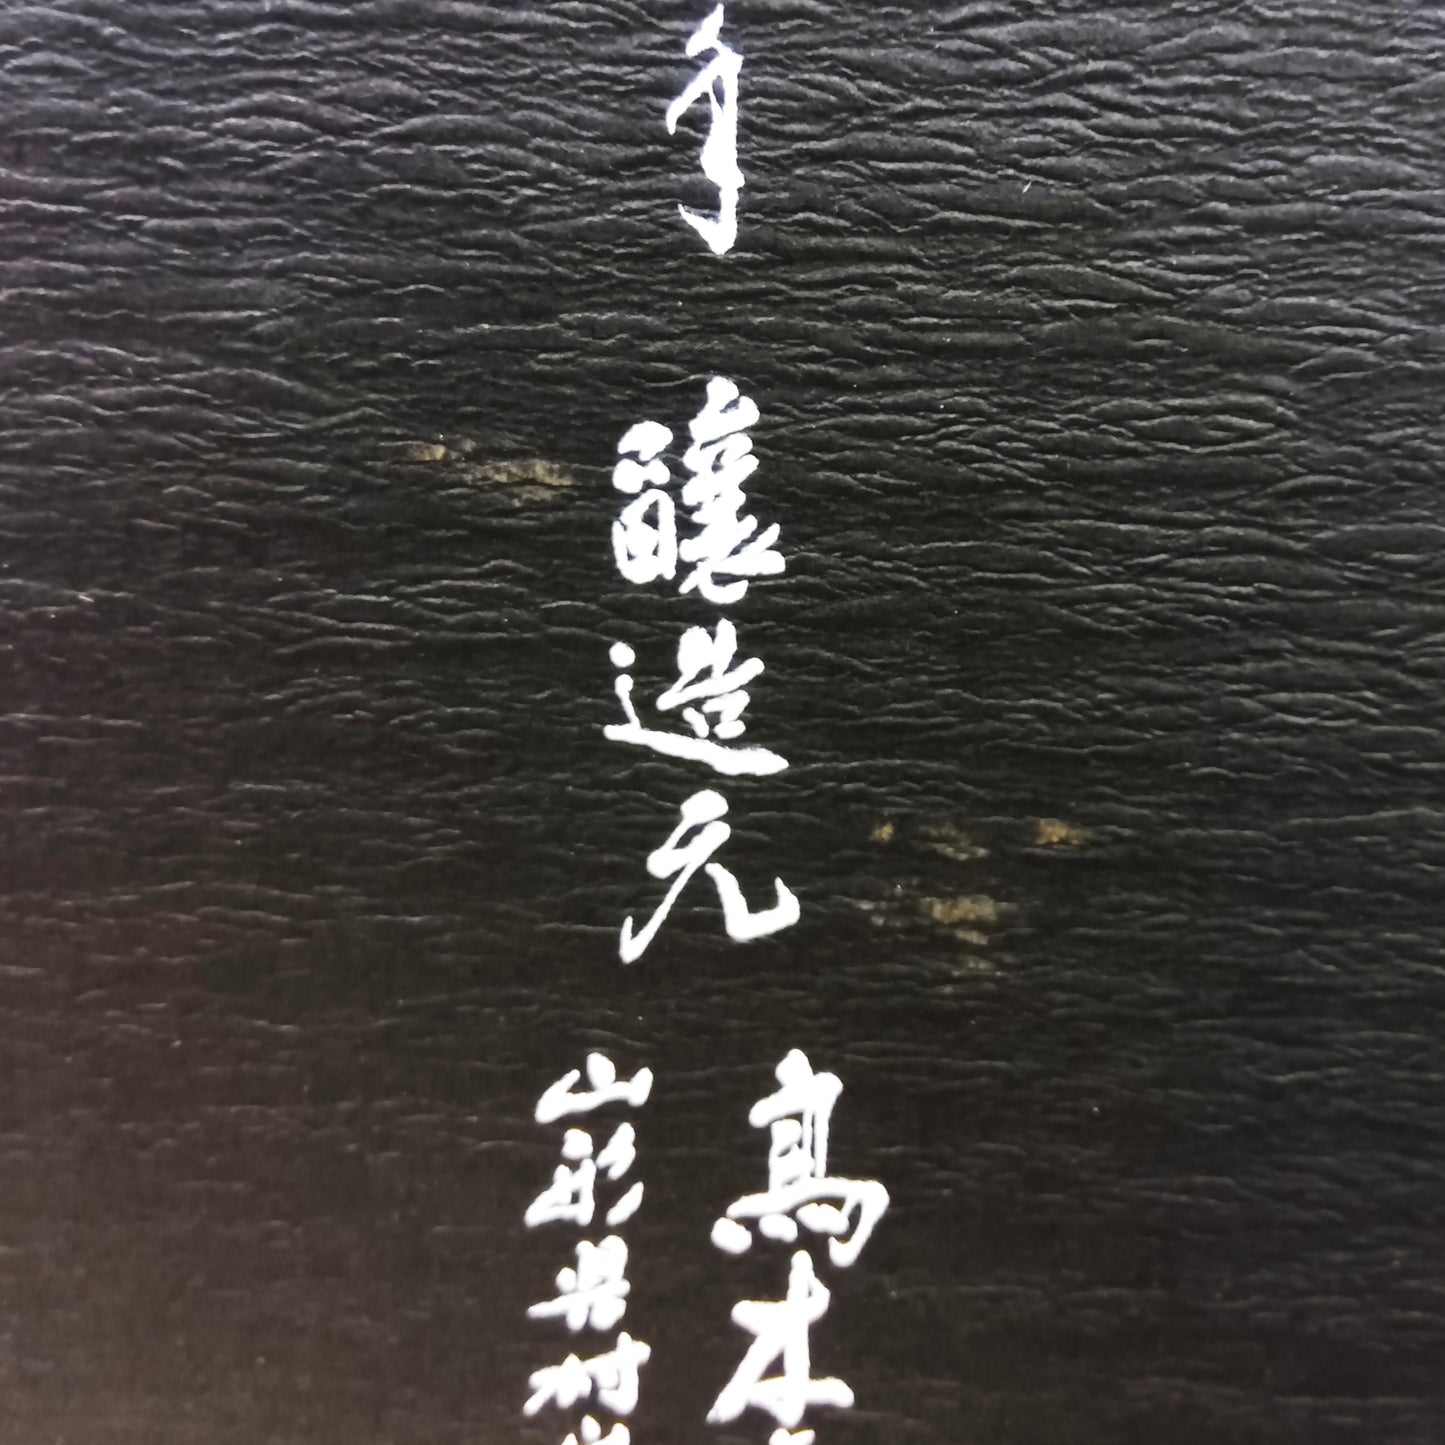 釀造元
高木
山形県村